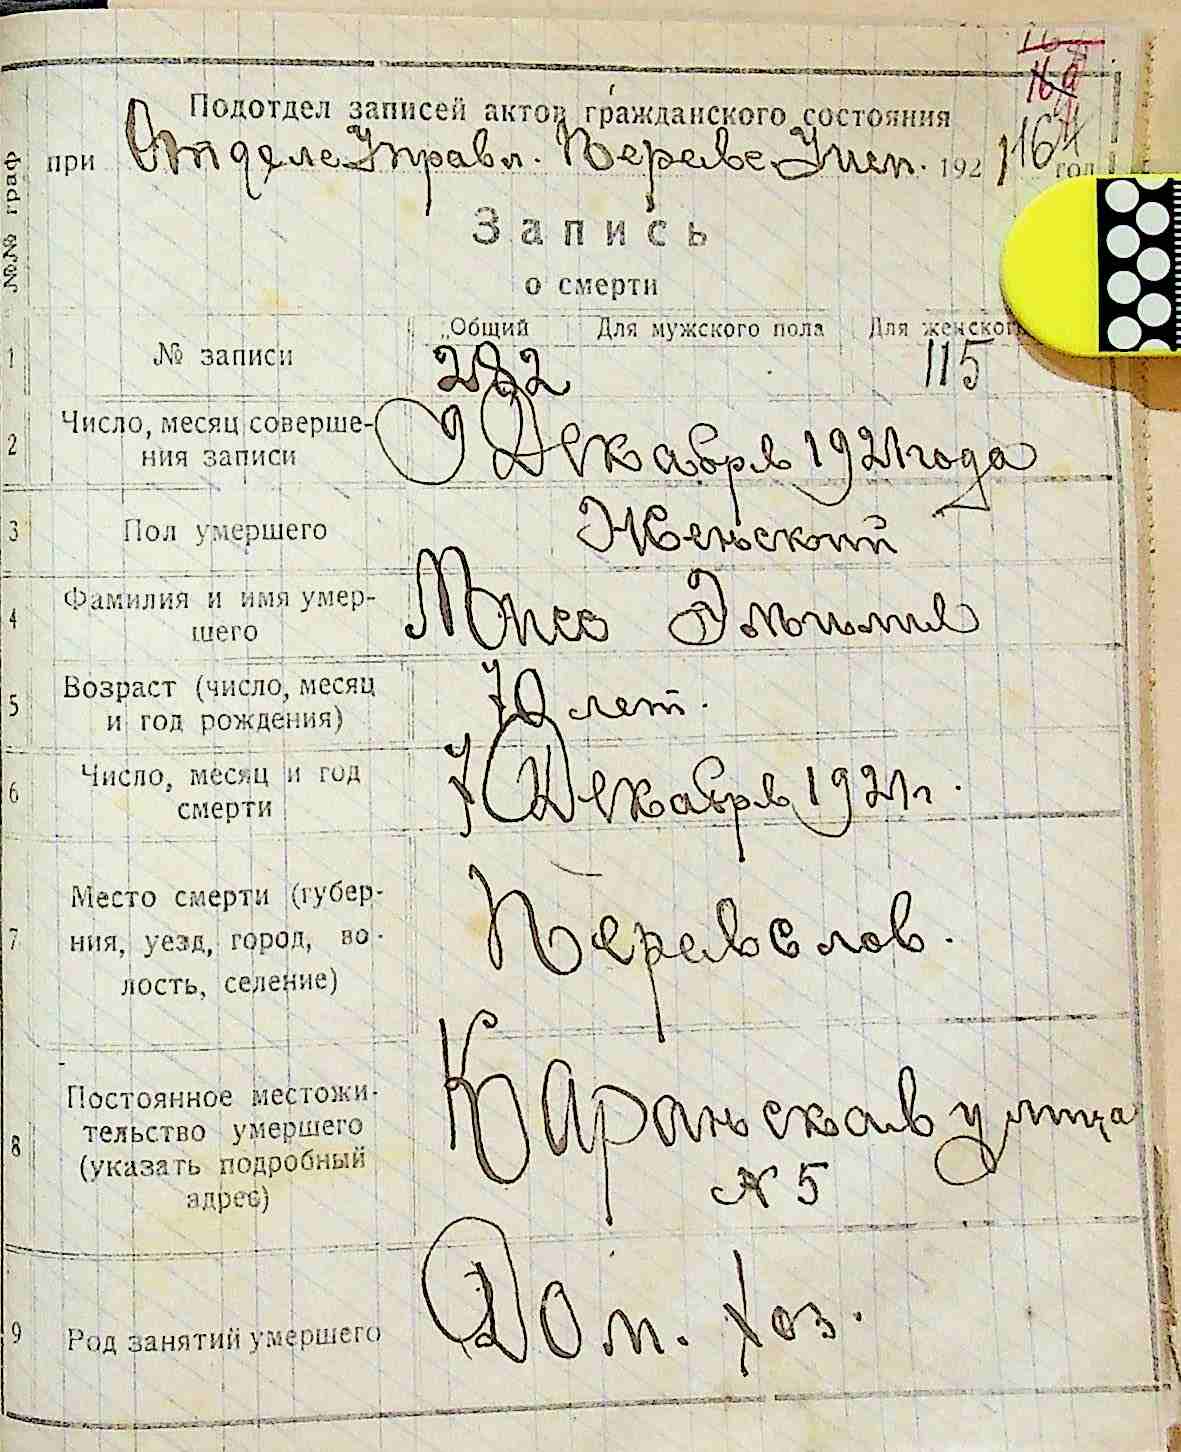 164
Подотдел записей актов гражданского состояния
при Отделе Управл. Переяс. Уисп. 1921 год
№№ граф
Запись
о смерти
Общий Для мужского пола Для женского
1 № записи 282 115
2 Число, месяц соверше-
ния записи 9 Декабря 1921 года
3 Пол умершего Женский
4 Фамилия и имя умер-
шего Эмилия
5 Возраст (число, месяц
и год рождения) 70 лет.
6 Число, месяц и год
смерти 7 Декабря 1921 г.
7 Место смерти (губер-
ния, уезд, город, во-
лость, селение) Переяслов.
8 Постоянное местожи-
тельство умершего
(указать подробный
адрес) Караньская улица
№ 5
9 Род занятий умершего Дом. Хоз.